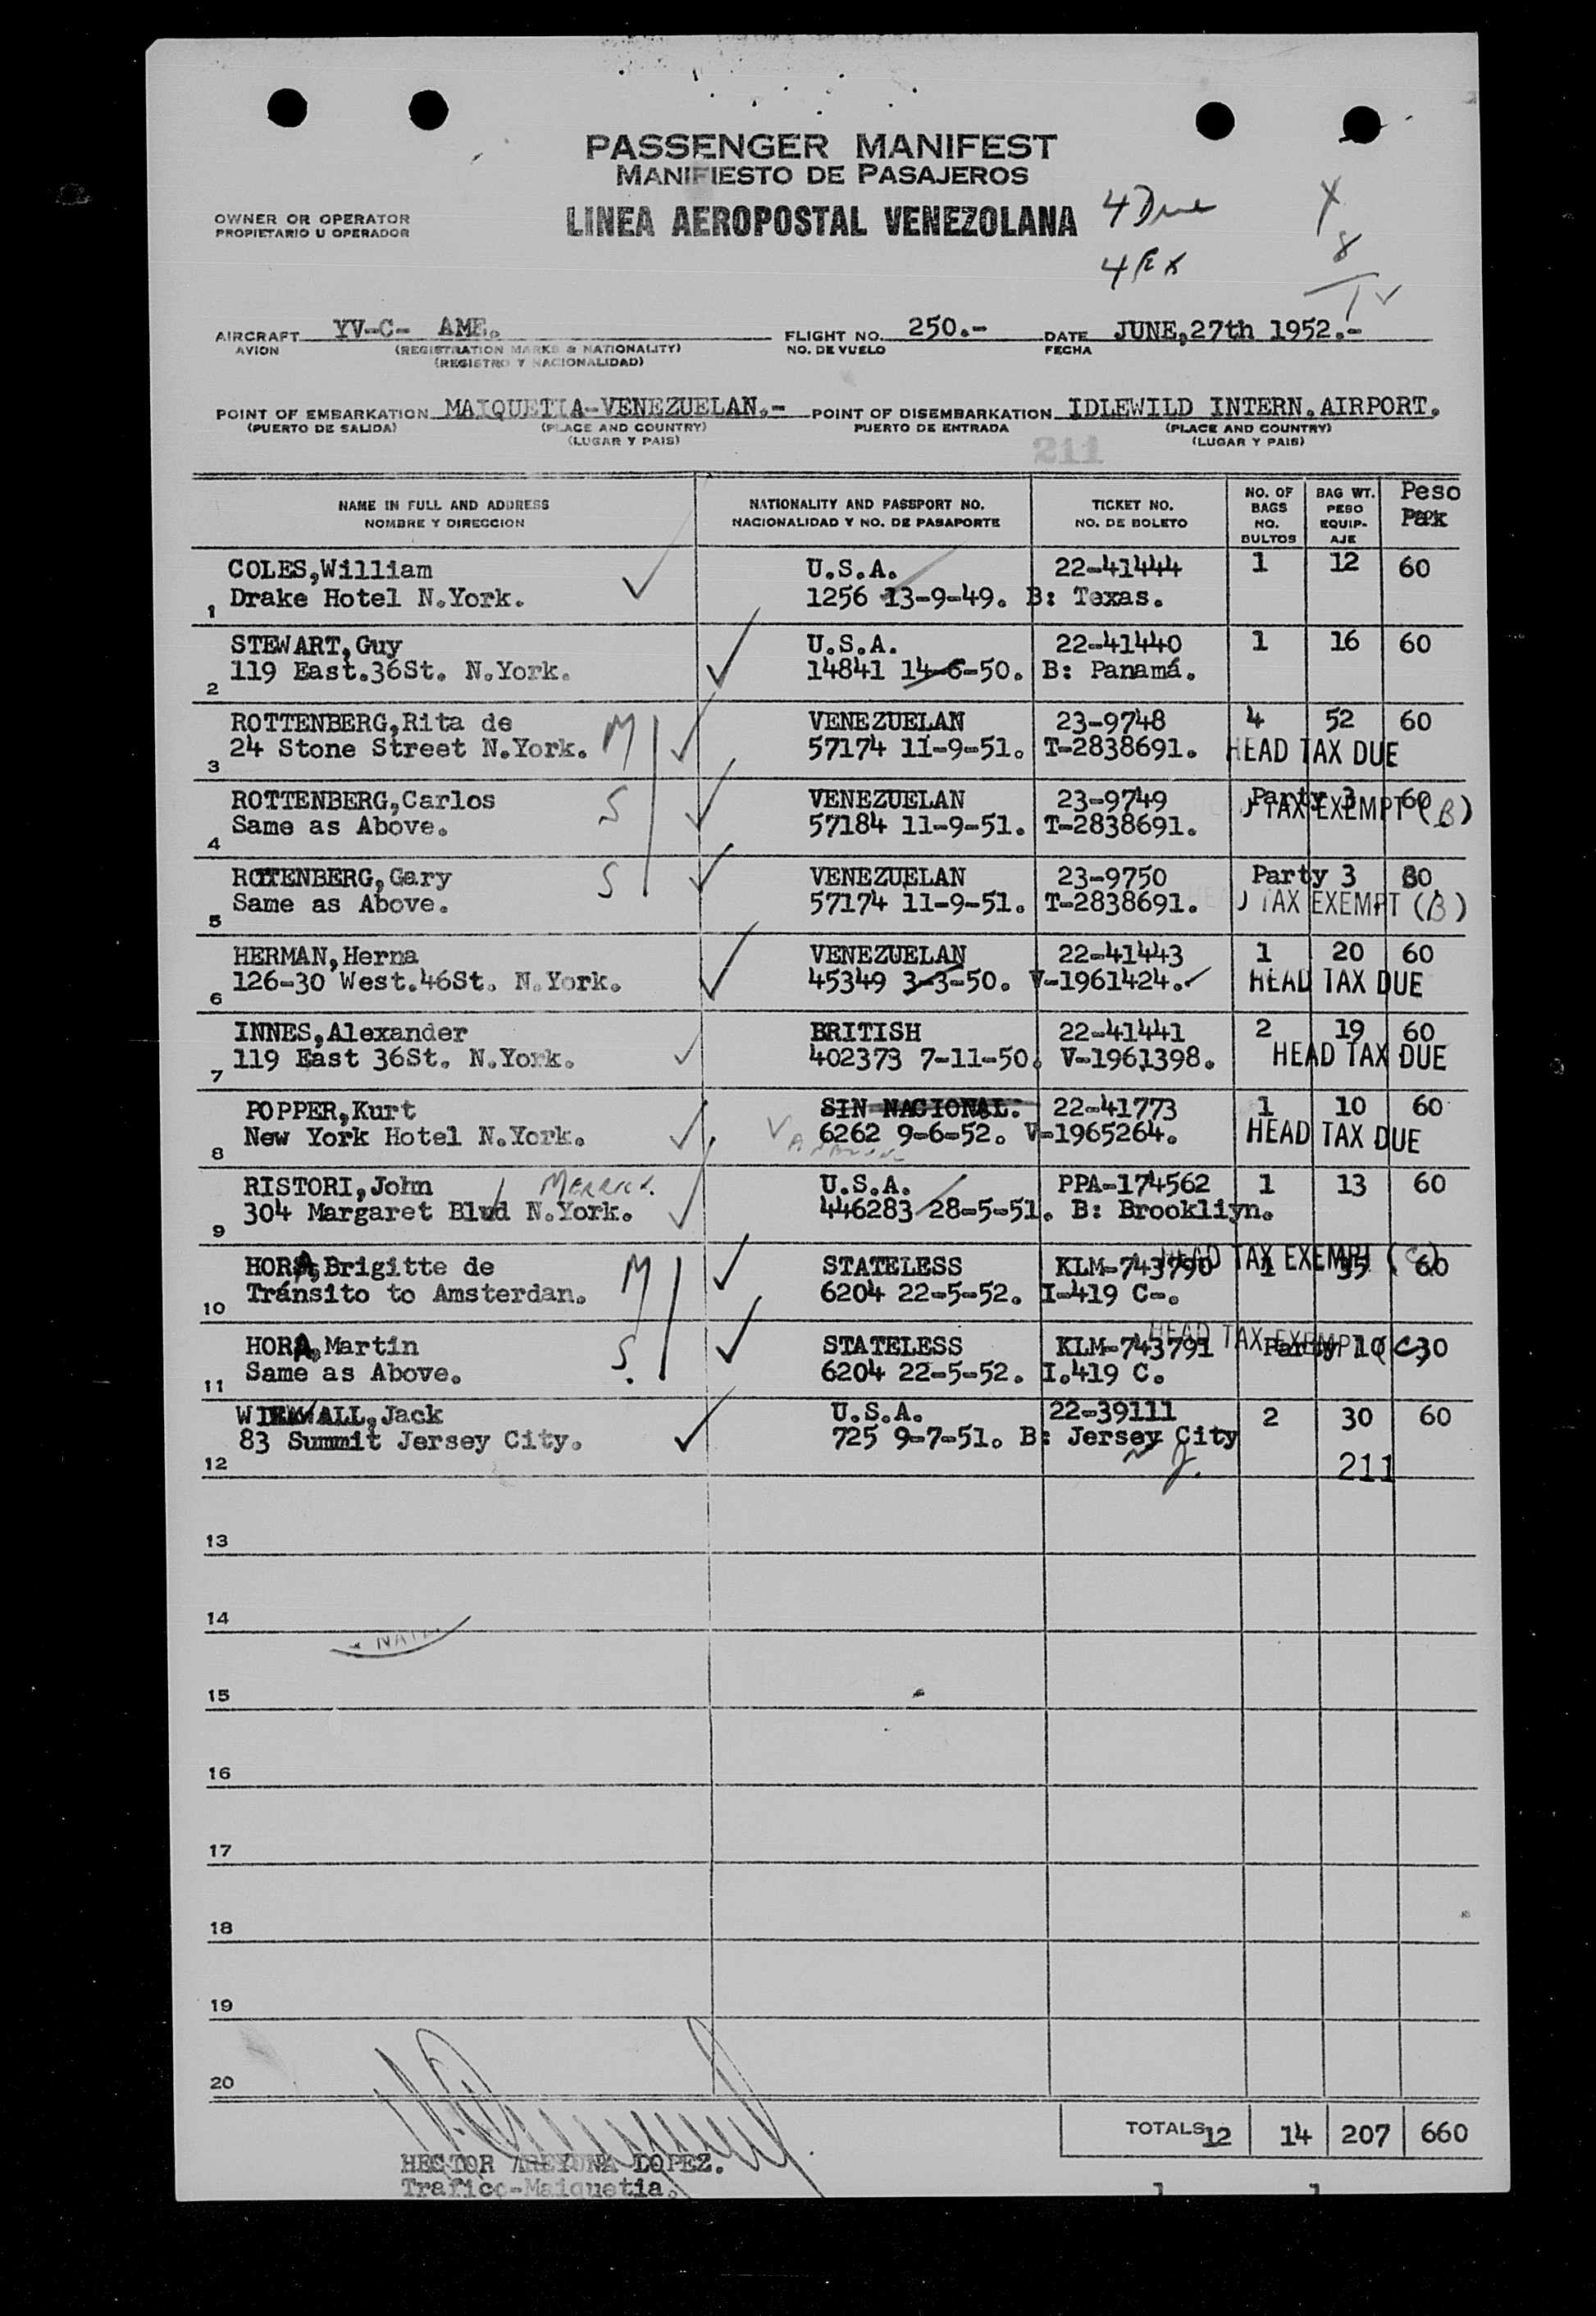 PASSENGER MANIFEST
MANIFIESTO DE PASAJEROS
OWNER OR OPERATOR
PROPIETARIO U OPERADOR
LINEA AEROPOSTAL VENEZOLANA
4 Due
4 Ex
8
AIRCRAFT YV-C- AME. FLIGHT NO. 250.- DATE JUNE,27th 1952.-
AVION (REGISTRATION MARKS & NATIONALITY) NO. DE VUELO FECHA
(REGISTRO Y NACIONALIDAD)
POINT OF EMBARKATION MAIQUETIA-VENEZUELAN.- POINT OF DISEMBARKATION IDLEWILD INTERN.AIRPORT.
(PUERTO DE SALIDA) (PLACE AND COUNTRY) PUERTO DE ENTRADA (PLACE AND COUNTRY)
(LUGAR Y PAIS) (LUGAR Y PAIS)
211
NAME IN FULL AND ADDRESS NATIONALITY AND PASSPORT NO. TICKET NO. NO. OF BAGS BAG WT. Peso
NOMBRE Y DIRECCION NACIONALIDAD Y NO. DE PASAPORTE NO. DE BOLETO NO. BULTOS PESO EQUIP-AJE
COLES,William U.S.A. 22-41444 1 12 60
1 Drake Hotel N.York. 1256 13-9-49. B: Texas.
STEWART,Guy U.S.A. 22-41440 1 16 60
2 119 East.36St. N.York. 14841 14-6-50. B: Panamá.
ROTTENBERG,Rita de M VENEZUELAN 23-9748 4 52 60
3 24 Stone Street N.York. 57174 11-9-51. T-2838691. HEAD TAX DUE
ROTTENBERG,Carlos S VENEZUELAN 23-9749 Party 3 60
4 Same as Above. 57184 11-9-51. T-2838691. TAX EXEMPT (B)
ROTTENBERG,Gary S VENEZUELAN 23-9750 Party 3 30
5 Same as Above. 57174 11-9-51. T-2838691. TAX EXEMPT (B)
HERMAN,Herna VENEZUELAN 22-41443 1 20 60
6 126-30 West.46St. N.York. 45349 3-3-50. V-1961424. HEAD TAX DUE
INNES,Alexander BRITISH 22-41441 2 19 60
7 119 East 36St. N.York. 402373 7-11-50. V-1961398. HEAD TAX DUE
POPPER,Kurt SIN NACIONAL. 22-41773 1 10 60
8 New York Hotel N.York. 6262 9-6-52. V-1965264. HEAD TAX DUE
RISTORI,John MERRICK. U.S.A. PPA-174562 1 13 60
9 304 Margaret Blvd N.York. 446283 28-5-51. B: Brookliyn.
HEAD TAX EXEMPT (C)
HORA,Brigitte de M STATELESS KLM-743790 1 35 60
10 Tránsito to Amsterdan. 6204 22-5-52. I-419 C-.
HEAD TAX EXEMPT (C)
HORA,Martin S. STATELESS KLM-743791 Party 10 30
11 Same as Above. 6204 22-5-52. I.419 C.
Jack U.S.A. 22-39111 2 30 60
83 Summit Jersey City. 725 9-7-51. B: Jersey City
12 N J. 211
13
14
15
16
17
18
19
20
TOTALS 12 14 207 660
HECTOR LOPEZ.
Trafico-Maiquetia.